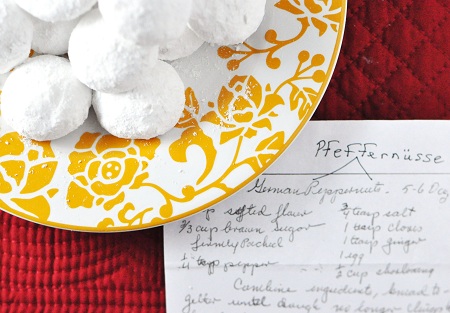 Pfeffernüsse
German Peppernuts. 5-6 Doz
sifted flour ¾ teasp salt
⅔ cup brown sugar 1 teasp cloves
firmly Packed 1 teasp ginger
1 egg
¼ tsp pepper cup shortening
Combine ingredients, knead to-
gether until dough no longer clings